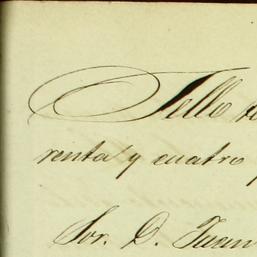 Sello
renta y cuatro
Sor. D. Juan